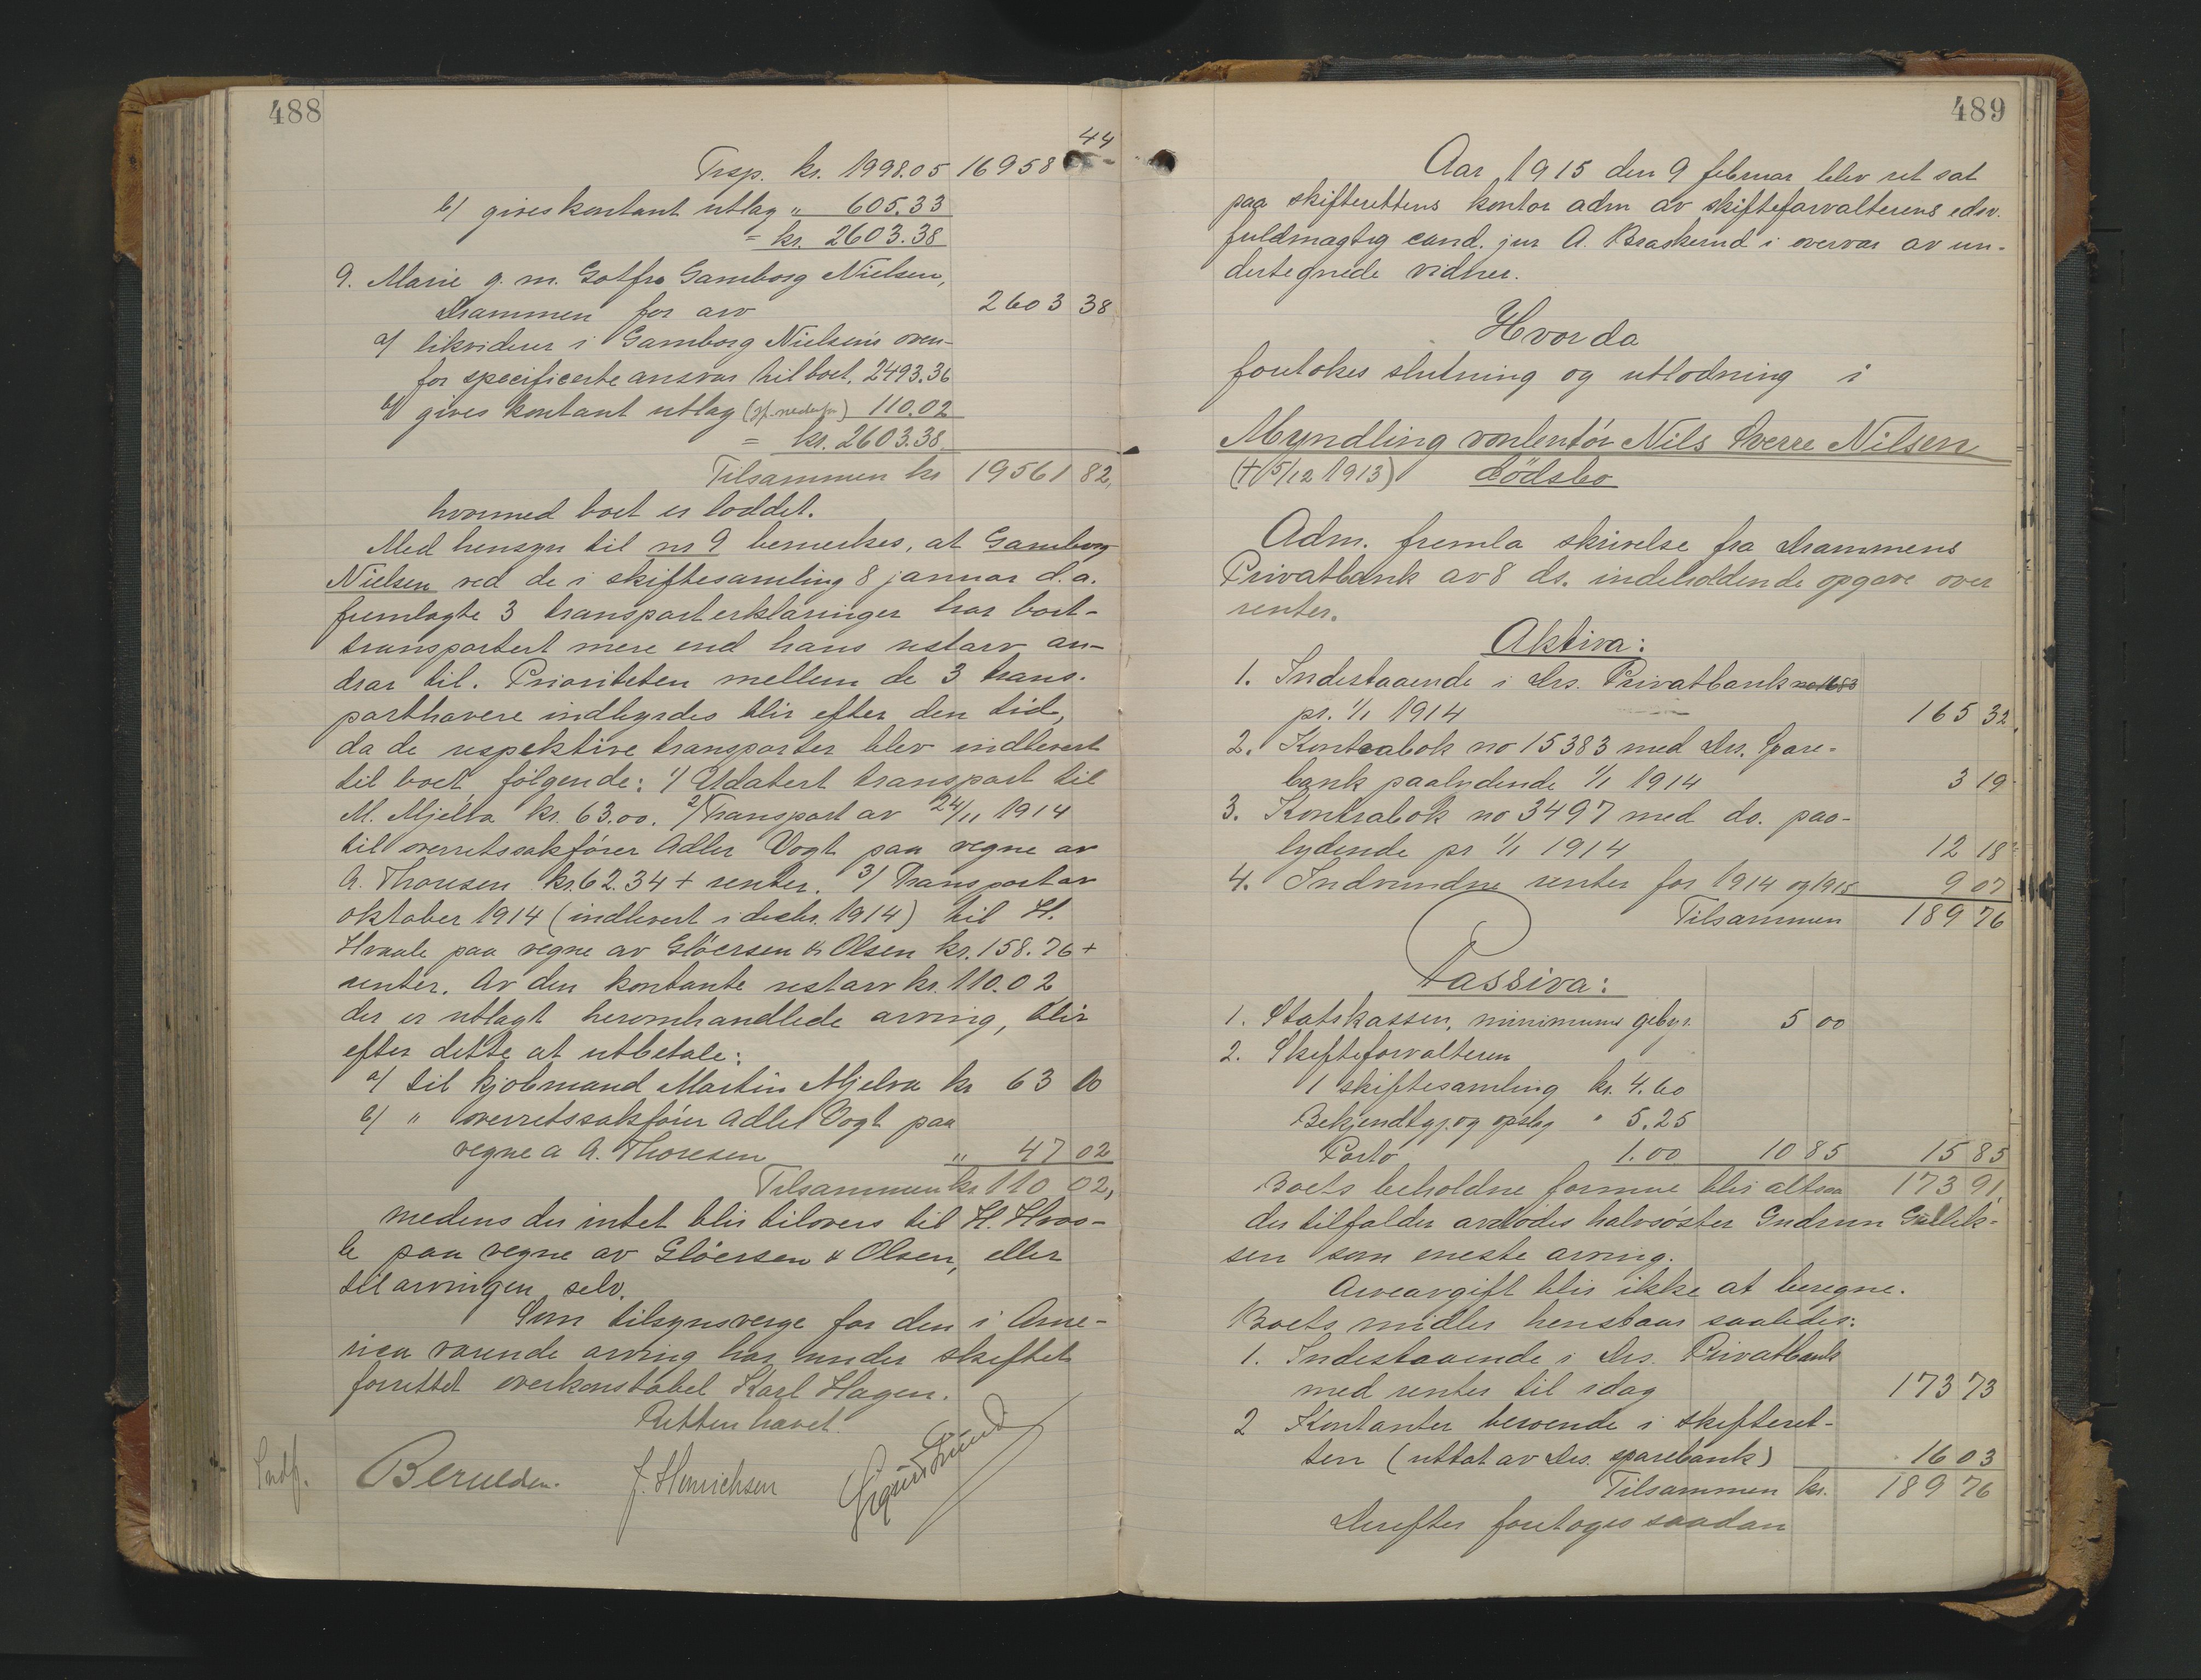 488
Trsp. kr. 1998.05 16958 44
b/ gives kontant utlag " 605.33
= kr. 2603.38
9. Marie g. m. Gotfr. Gamborg Nielsen,
Drammen for arv 2603 38
a/ likviderer i Gamborg Nielsens oven-
for specificerte ansvar til boet. 2493.36
b/ gives kontant utlag (jf. nedenfor) 110.02
= kr. 2603.38
Tilsammen kr 19561 82,
hvormed boet er loddet.
Med hensyn til nr 9 bemerkes, at Gamborg
Nielsen ved de i skiftesamling 8 januar d.a.
fremlagte 3 transporterklæringer har bort-
transportert mere end hans restarv an-
drar til. Prioriteten mellem de 3 trans-
porthavere indbyrdes blir efter den tid,
da de respektive transporter blev indlevert
til boet følgende: 1/ Udatert transport til
M. Mjelva kr. 63.00. 2/ Transport av 24/11 1914
til overretssakfører Adler Vogt paa vegne av
A. Thoresen kr. 62.34 + renter. 3/ Transport av
oktober 1914 (indlevert i decbr. 1914) til H.
Hvaale paa vegne av Gløersen & Olsen kr. 158.76 +
renter. Av den kontante restarv kr. 110.02
der er utlagt heromhandlede arving, blir
efter dette at utbetale:
a/ til kjøbmand Martin Mjelva kr 63 00
b/ " overretssakfører Adler Vogt paa
vegne a A. Thoresen " 47 02
Tilsammen kr. 110 02,
medens der intet blir tilovers til H. Hvaa-
le paa vegne av Gløersen & Olsen, eller
til arvingen selv.
Som tilsynsverge for den i Ame-
rica værende arving har under skiftet
forrettet overkonstabel Karl Hagen.
Retten hævet.
Indf. Berulden. J. Henrichsen Sigurd Lund
489
Aar 1915 den 9 februar blev ret sat
paa skifterettens kontor adm av skifteforvalterens edsv.
fuldmægtig cand. jur A. Braskerud i overvær av un-
dertegnede vidner.
Hvorda
foretokes slutning og utlodning i
Myndling volontør Nils Sverre Nilsen
(+ 15/12 1913) dødsbo
Adm. fremla skrivelse fra Drammens
Privatbank av 8 ds. indeholdende opgave over
renter.
Aktiva:
1. Indestaaende i Drs. Privatbank no 1683
pr. 1/1 1914 165 32
2. Kontrabok no 15383 med Drs. Spare-
bank paalydende 1/1 1914 3 19
3. Kontrabok no 3497 med do. paa-
lydende pr 1/1 1914 12 18
4. Indvundne renter for 1914 og 1915 9 07
Tilsammen 189 76
Passiva:
1. Statskassen, minimums gebyr. 5 00
2. Skifteforvalteren
1 skiftesamling kr. 4.60
Bekjendtgj. og opslag " 5.25
Porto 1.00 10 85 15 85
Boets beholdne formue blir altsaa 173 91,
der tilfalder avdødes halvsøster Gudrun Gullik-
sen som eneste arving.
Arveavgift blir ikke at beregne.
Boets midler henstaar saaledes:
1. Indestaaende i Drs. Privatbank
med renter til idag 173 73
2 Kontanter beroende i skifteret-
ten (uttat av Drs. sparebank) 16 03
Tilsammen kr. 189 76
Derefter foretoges saadan